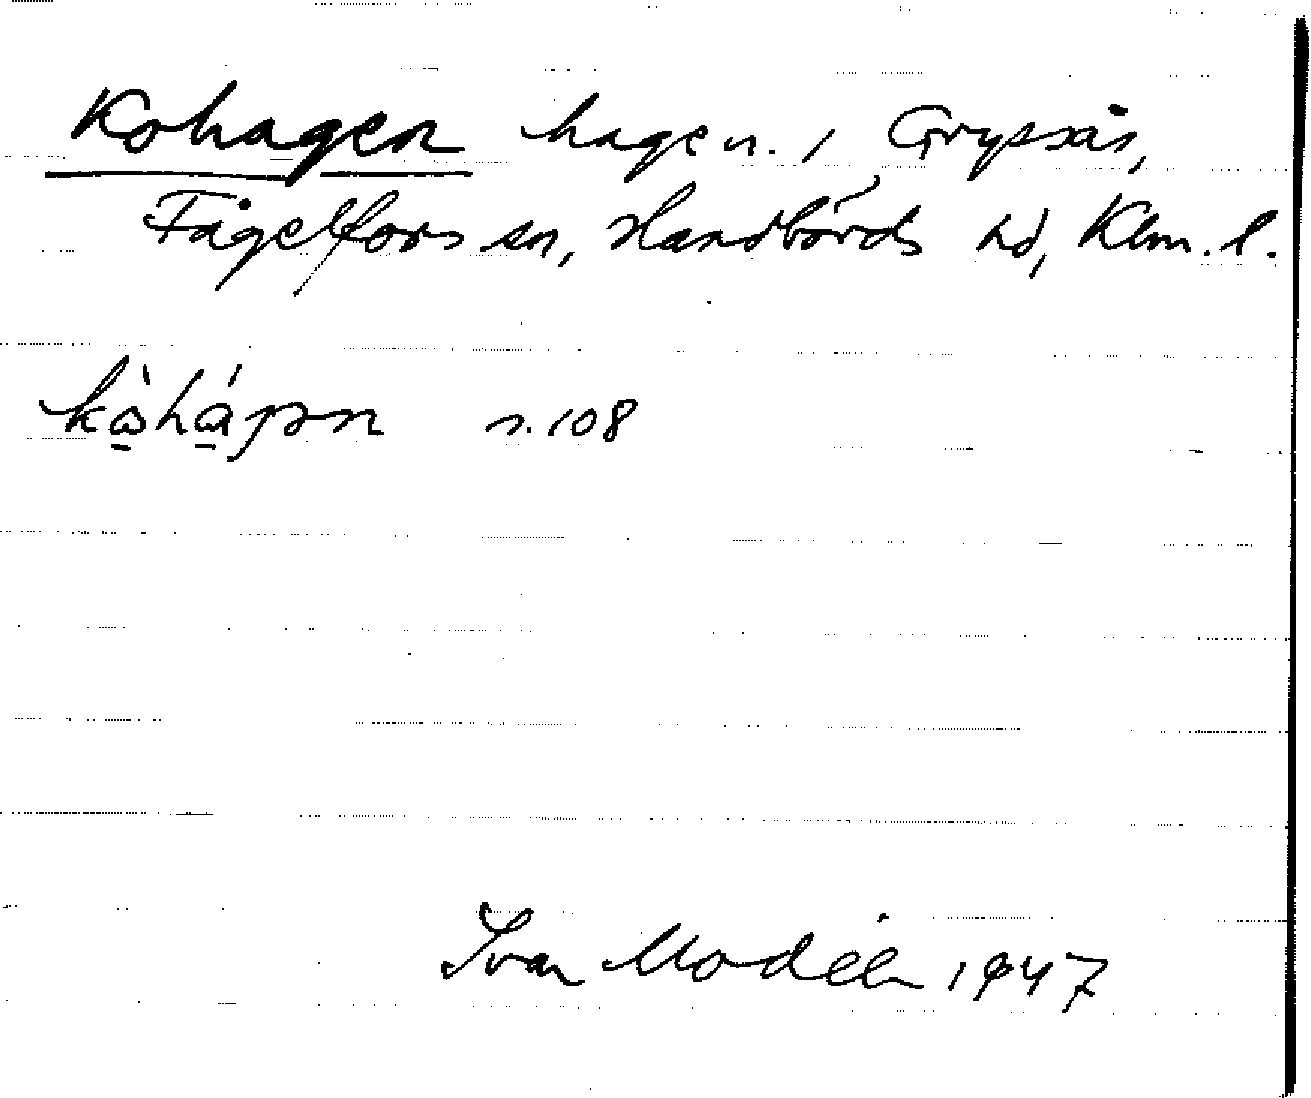 Kohagen hage n. i Gryssås,
Fågelfors sn, Handbörds hd, Klm. l.
s. 108
Ivar Modéer 1947